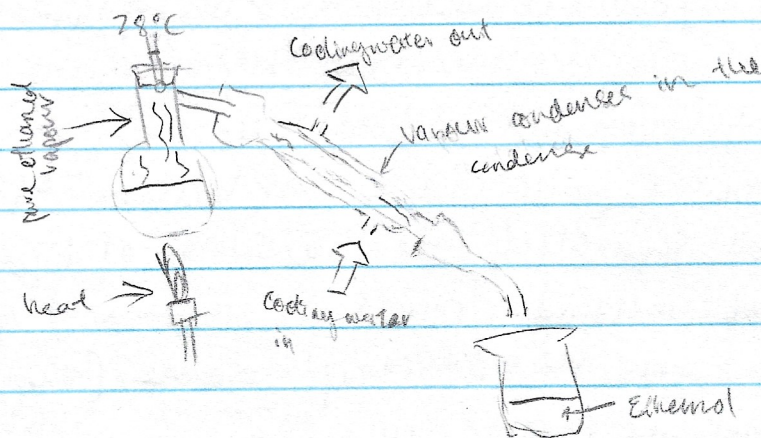 78°C
Cooling water out
pure ethanol
vapour
Vapour condenses in the
condenser
heat
Cooling water
in
Ethanol